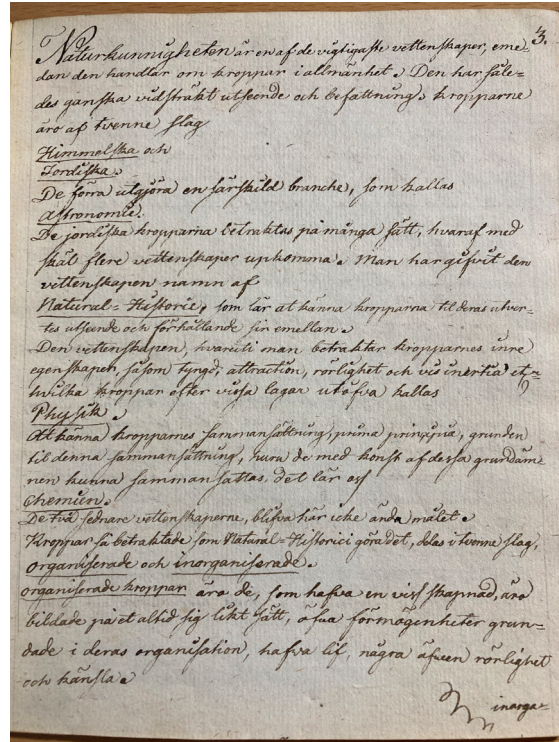 3.
Naturkunnigheten är en af de vigtigaste vettenskaper, eme=
dan den handlar om kroppar i allmänhet. Den har såle=
des ganska vidsträkt utseende och befattning. kropparne
äro af tvenne slag
Himmelska och
Jordiska.
De förra utgöra en särskild branche, som kallas
Astronomie.
De jordiska kropparna betraktas på många sätt, hvaraf med
skäl flere vettenskaper upkomma. Man har gifvit den
vettenskapen namn af
Natural=Historie, som lär at känna kropparna til deras utver=
tes utseende och förhållande sin emellan.
Den vettenskapen, hvaruti man betraktar kropparnes inre
egenskaper, såsom tyngd, attraction, rörlighet och vis inertiæ etc
hvilka kroppar efter vissa lagar utöfva kallas
Physik.
At känna kropparnes sammansättning, prima principia, grunden
til denna sammansättning, huru de med konst af dessa grundäm=
nen kunna sammansättas, det lär oss
Chemien.
De två sednare vettenskaperne, blifva här icke ändamålet.
Kroppar så betraktade som Natural=Historici göra det, delas i tvenne slag,
organiserade och inorganiserade.
organiserade kroppar äro de, som hafva en viss skapnad, äro
bildade på et altid sig likt sätt, öfva förmögenheter grun=
dade i deras organisation, hafva lif, några äfven rörlighet
och känsla.
inorga=